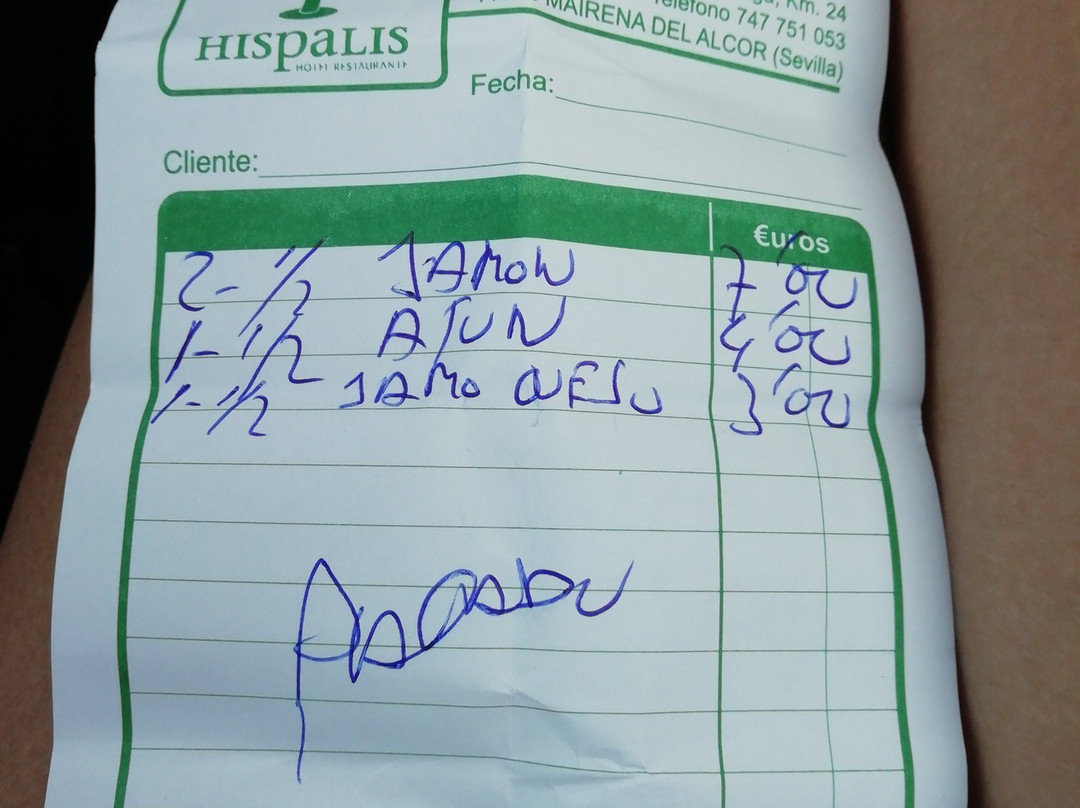 HISPALIS
HOTEL RESTAURANTE
Km. 24
Teléfono 747 751 053
MAIRENA DEL ALCOR (Sevilla)
Fecha:
Cliente:
€uros
2- 1/2 JAMON 7'00
1- 1/2 ATUN 4'00
1- 1/2 JAMO QUESO 3'00
Pagado